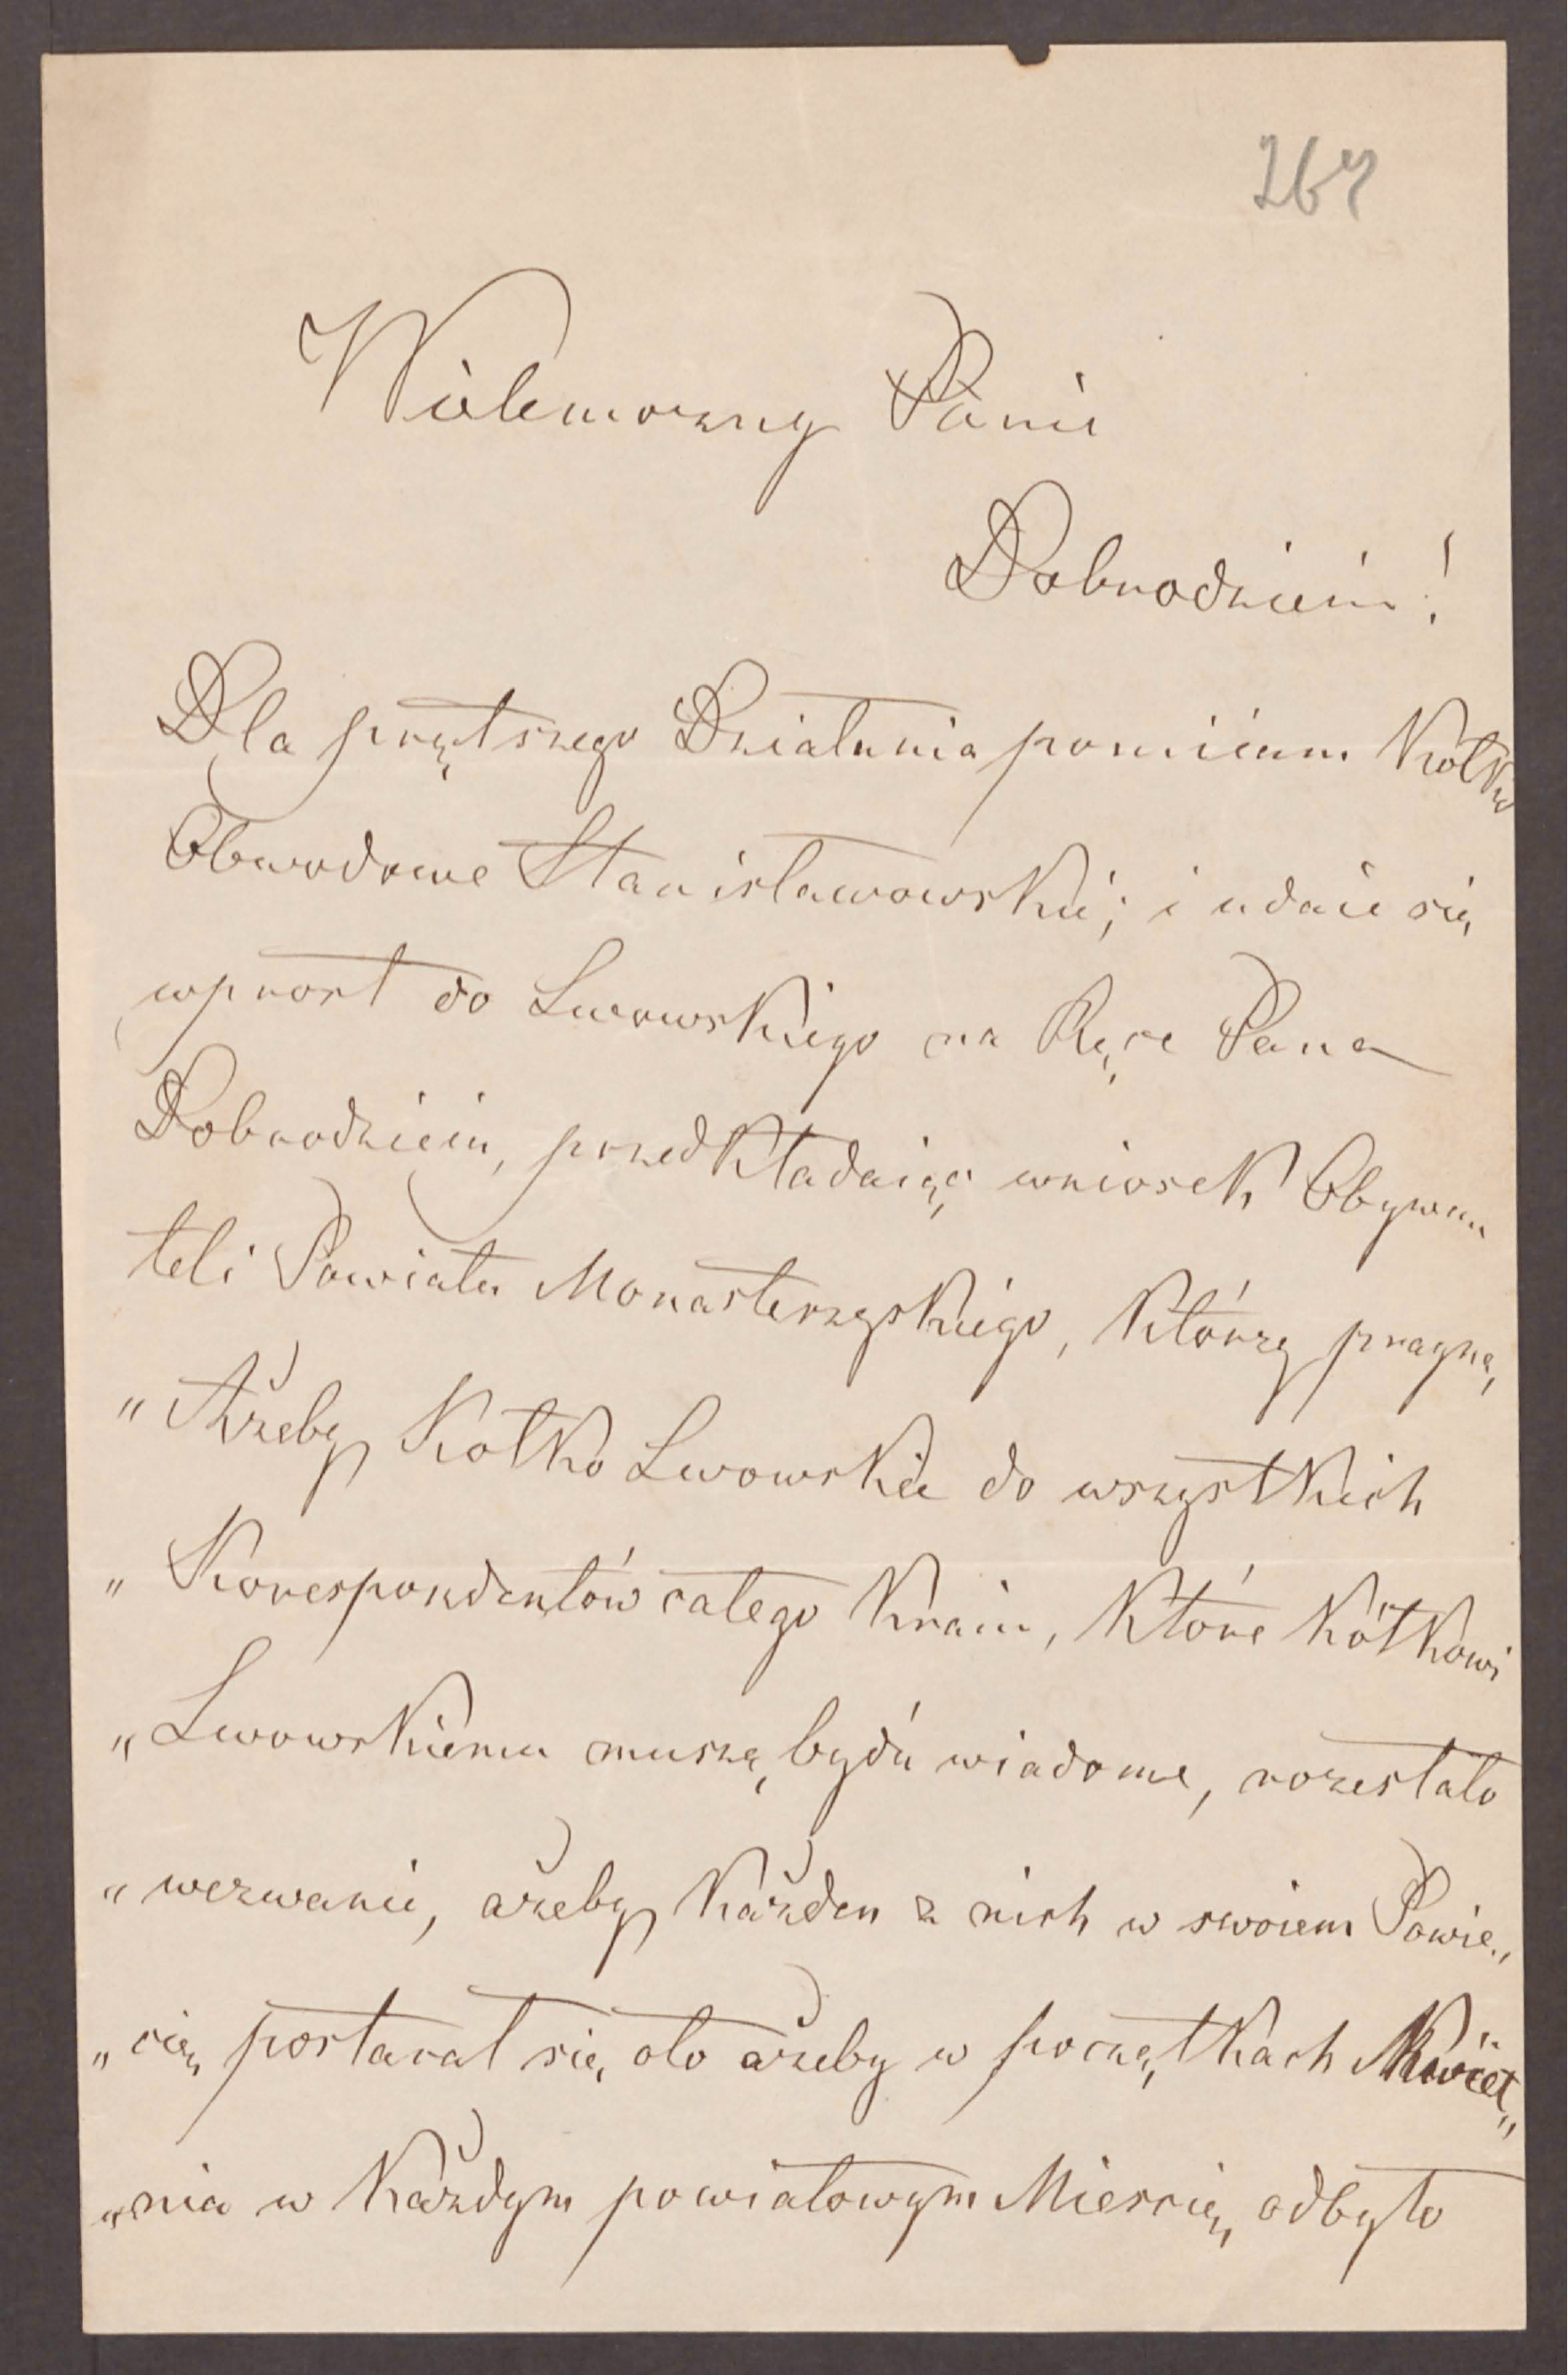 267
Wielmorzny Panie
Dobrodzieiu!
Dla prętszego Działania pomiiam Kółko
Obwodowe Stanisławowskie; i udaie się
wprost do Lwowskiego na Ręce Pana
Dobrodzieia, przedkładaiąc wniosek Obywa„
teli Powiatu Monasterzyskiego, Którzy pragną,
„Ażeby Kołko Lwowskie do wszystkich
„Korespondentów całego Kraiu, Które Kółkowi
„Lwowskiemu muszą bydź wiadome, rozesłało
„wezwanie, ażeby Każden z nich w swoiem Powie„
„cię postarał się oto ażeby w początkach Kwiet„
„nia w Każdym powiatowym Mieście odbyło